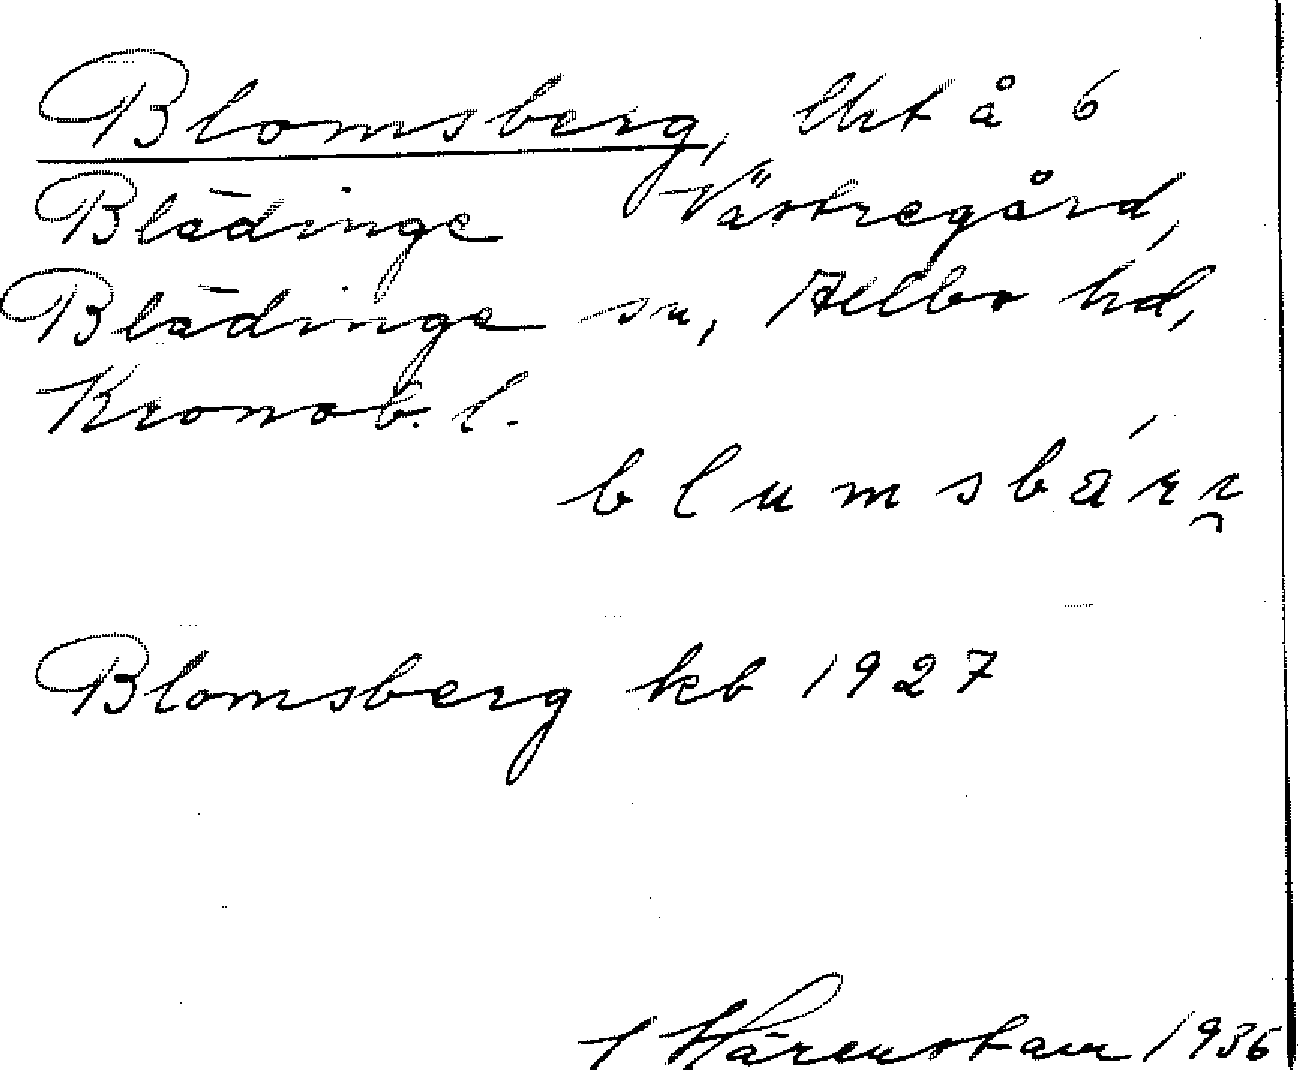 Blomsberg, lht å 6
Blädinge Västregård,
Blädinge sn, Allbo hd,
Kronob. l.
blumsbár
Blomsberg kb 1927
Härenstam 1936